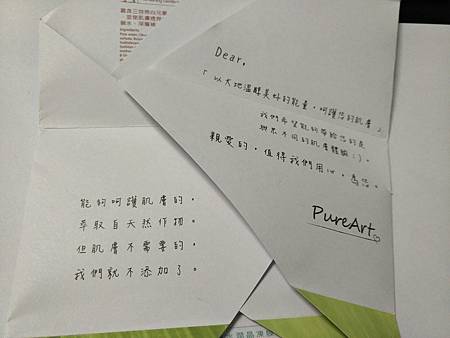 富含三特殊白元素
Ingredients:
Dear,
「以大地溫醇美好的能量,呵護您的肌膚」
我們希望能夠帶給您的是
與眾不同的肌膚體驗:)。
親愛的,值得我們用心,為您。
PureArt
能夠呵護肌膚的,
萃取自天然作物。
但肌膚不需要的,
我們就不添加了。
晶凍